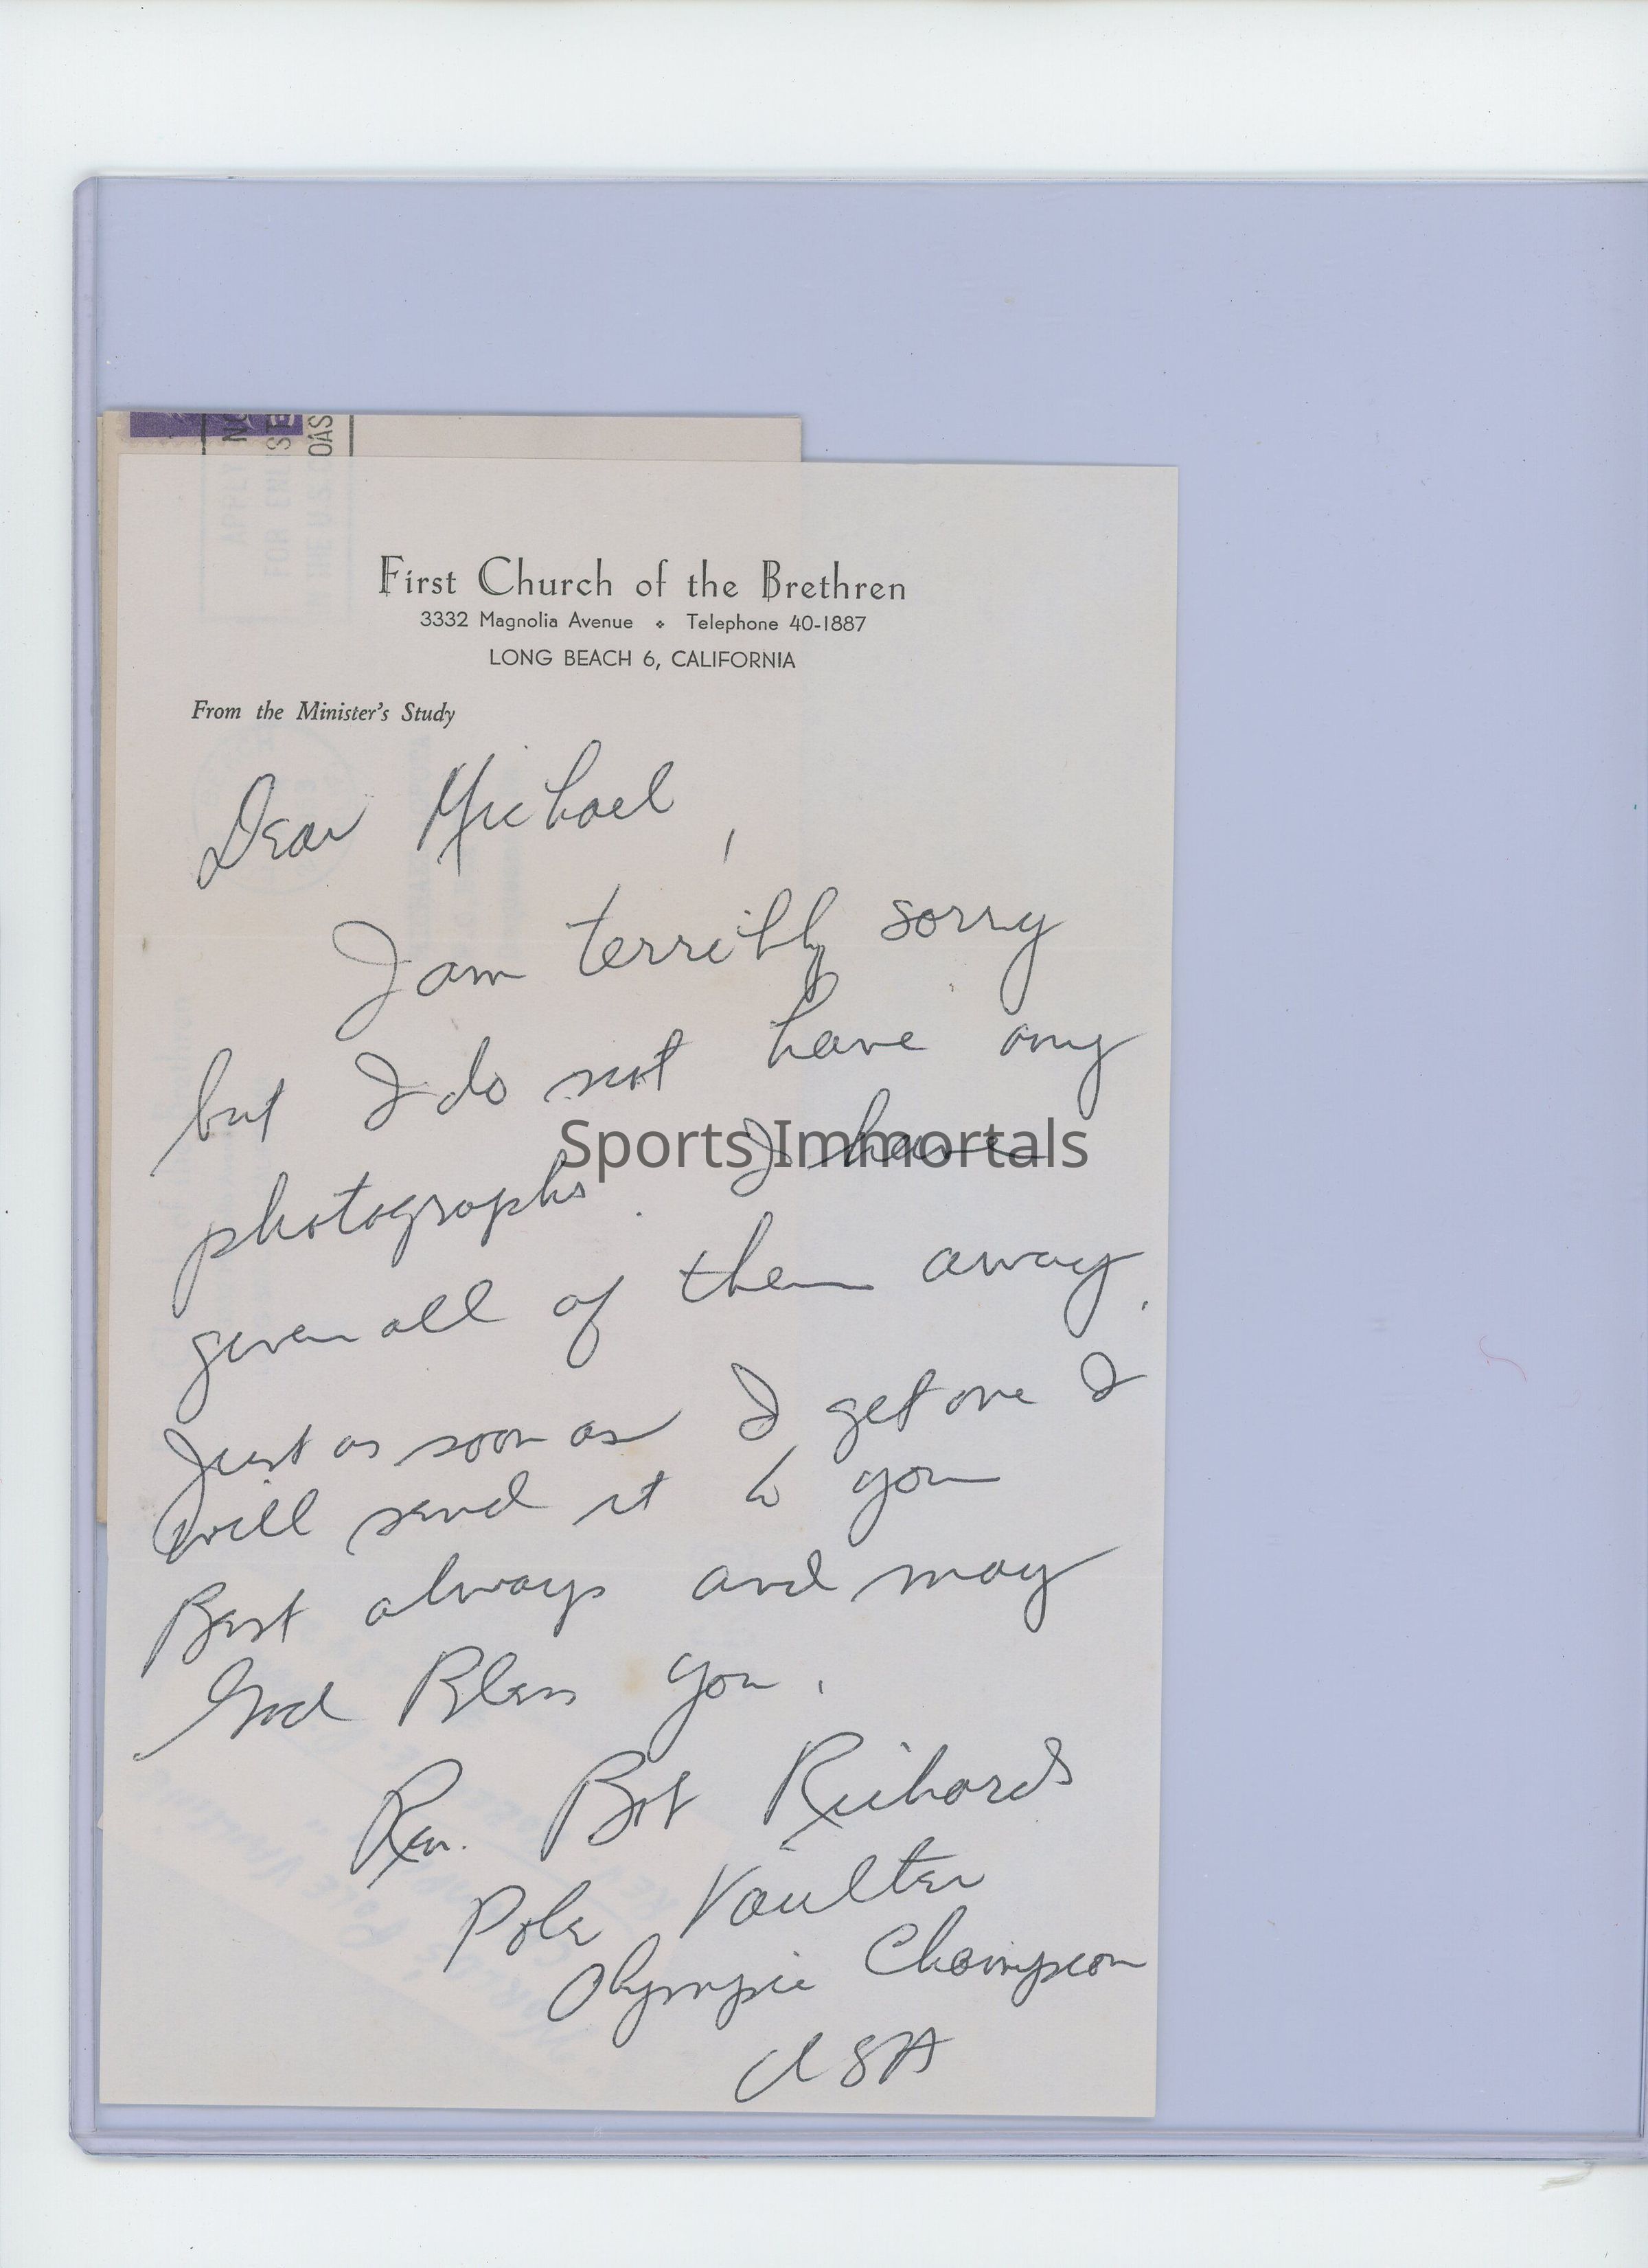 First Church of the Brethren
3332 Magnolia Avenue Telephone 40-1887
LONG BEACH 6, CALIFORNIA
From the Minister's Study
Dear Michael,
I am terribly sorry
but I do not have any
photographs. I have
given all of them away.
Just as soon as I get one I
will send it to you
Best always and may
God Bless you.
Rev. Bob Richards
Pole Vaulter
Olympic Champion
USA
Sports Immortals